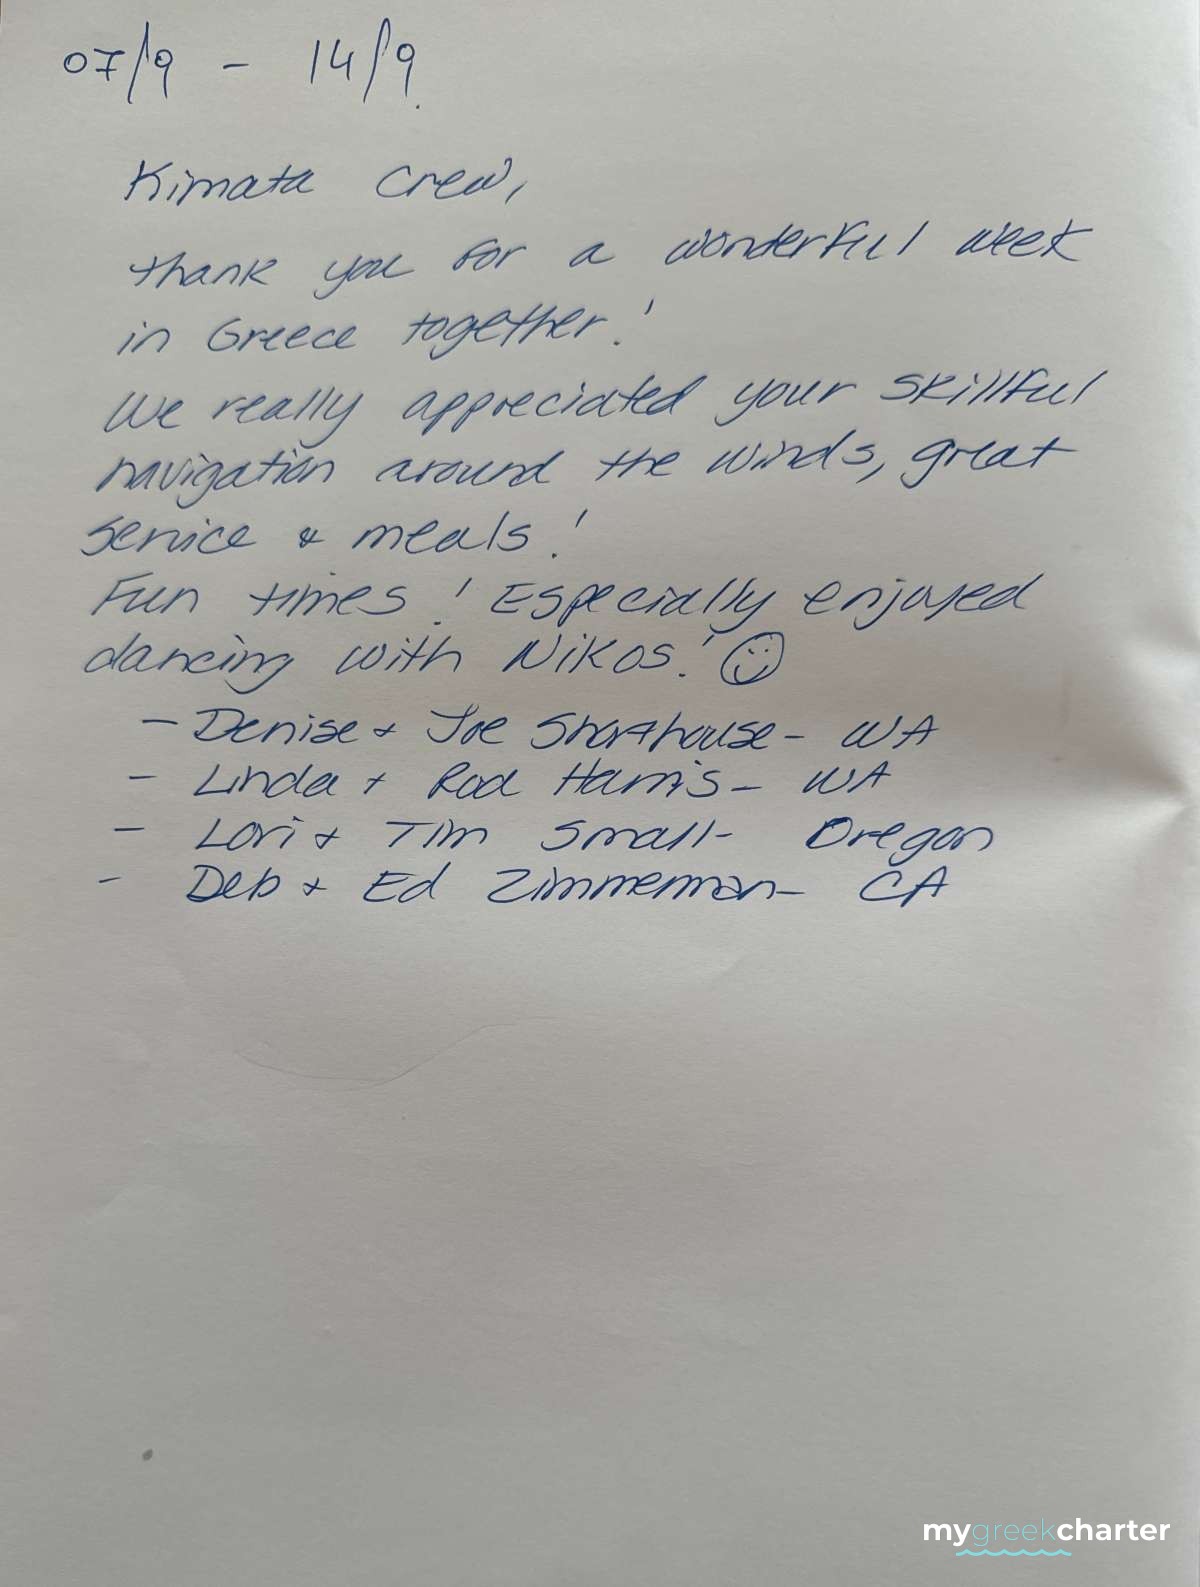 07/9 - 14/9.
Kimata Crew,
thank you for a wonderful week
in Greece together!
We really appreciated your skillful
navigation around the winds, great
service & meals!
Fun times! Especially enjoyed
dancing with Nikos! ☺
- Denise + Joe Shorthouse - WA
- Linda + Rod Harris - WA
- Lori + Tim Small - Oregon
- Deb + Ed Zimmerman - CA
mygreekcharter